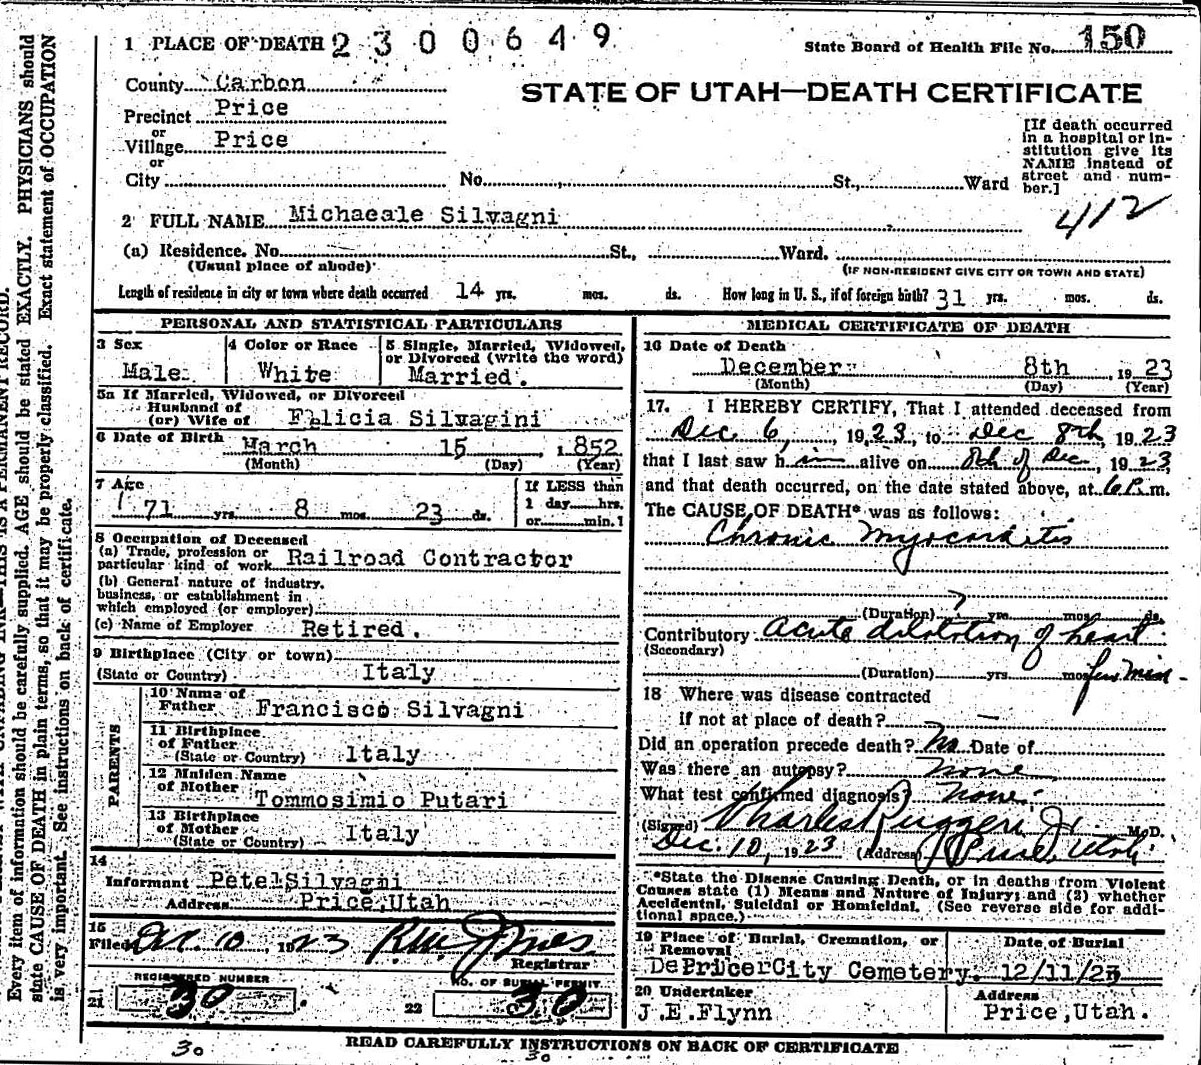 1 PLACE OF DEATH 2300649
State Board of Health File No. 150
County Carbon
STATE OF UTAH—DEATH CERTIFICATE
Precinct Price
or
Village Price
or
City No. St., Ward
[If death occurred
in a hospital or in-
stitution give its
NAME instead of
street and num-
ber.]
412
2 FULL NAME Michaeale Silvagni
(a) Residence. No. St., Ward.
(Usual place of abode) (IF NON-RESIDENT GIVE CITY OR TOWN AND STATE)
Length of residence in city or town where death occurred 14 yrs. mos. ds. How long in U. S., if of foreign birth? 31 yrs. mos. ds.
PERSONAL AND STATISTICAL PARTICULARS
3 Sex
Male
4 Color or Race
White
5 Single, Married, Widowed,
or Divorced (write the word)
Married.
5a If Married, Widowed, or Divorced
Husband of
(or) Wife of Felicia Silvagini
6 Date of Birth March 15 , 1852
(Month) (Day) (Year)
7 Age
71 yrs. 8 mos. 23 ds.
If LESS than
1 day hrs.
or min.
8 Occupation of Deceased
(a) Trade, profession or
particular kind of work Railroad Contractor
(b) General nature of industry,
business, or establishment in
which employed (or employer)
(c) Name of Employer Retired.
9 Birthplace (City or town)
(State or Country) Italy
PARENTS
10 Name of
Father Francisco Silvagni
11 Birthplace
of Father
(State or Country) Italy
12 Maiden Name
of Mother
Tommosimio Putari
13 Birthplace
of Mother
(State or Country) Italy
14
Informant Pete Silvagni
Address Price, Utah
15
Filed Dec 10, 1923
Registrar
REGISTERED NUMBER
21 30
NO. OF BURIAL PERMIT
22 30
MEDICAL CERTIFICATE OF DEATH
16 Date of Death
December 8th , 1923
(Month) (Day) (Year)
17. I HEREBY CERTIFY, That I attended deceased from
Dec 6, , 1923, to Dec 8th, 1923
that I last saw him alive on 8th of Dec , 1923,
and that death occurred, on the date stated above, at 6 P. m.
The CAUSE OF DEATH* was as follows:
Chronic Myocarditis
(Duration) ? yrs. mos. ds.
Contributory Acute dilatation of heart
(Secondary)
(Duration) yrs. mos. few min-
18 Where was disease contracted
if not at place of death? —
Did an operation precede death? No Date of
Was there an autopsy? none
What test confirmed diagnosis? none.
(Signed) Charles Ruggeri Jr M.D.
Dec. 10, 1923 (Address) Price, Utah
*State the Disease Causing Death, or in deaths from Violent
Causes state (1) Means and Nature of Injury; and (2) whether
Accidental, Suicidal or Homicidal. (See reverse side for addi-
tional space.)
19 Place of Burial, Cremation, or
Removal
Price City Cemetery.
Date of Burial
12/11/23
20 Undertaker
J.E.Flynn
Address
Price, Utah.
READ CAREFULLY INSTRUCTIONS ON BACK OF CERTIFICATE
30 30
Every item of information should be carefully supplied. AGE should be stated EXACTLY. PHYSICIANS should
state CAUSE OF DEATH in plain terms, so that it may be properly classified. Exact statement of OCCUPATION
is very important. See instructions on back of certificate.